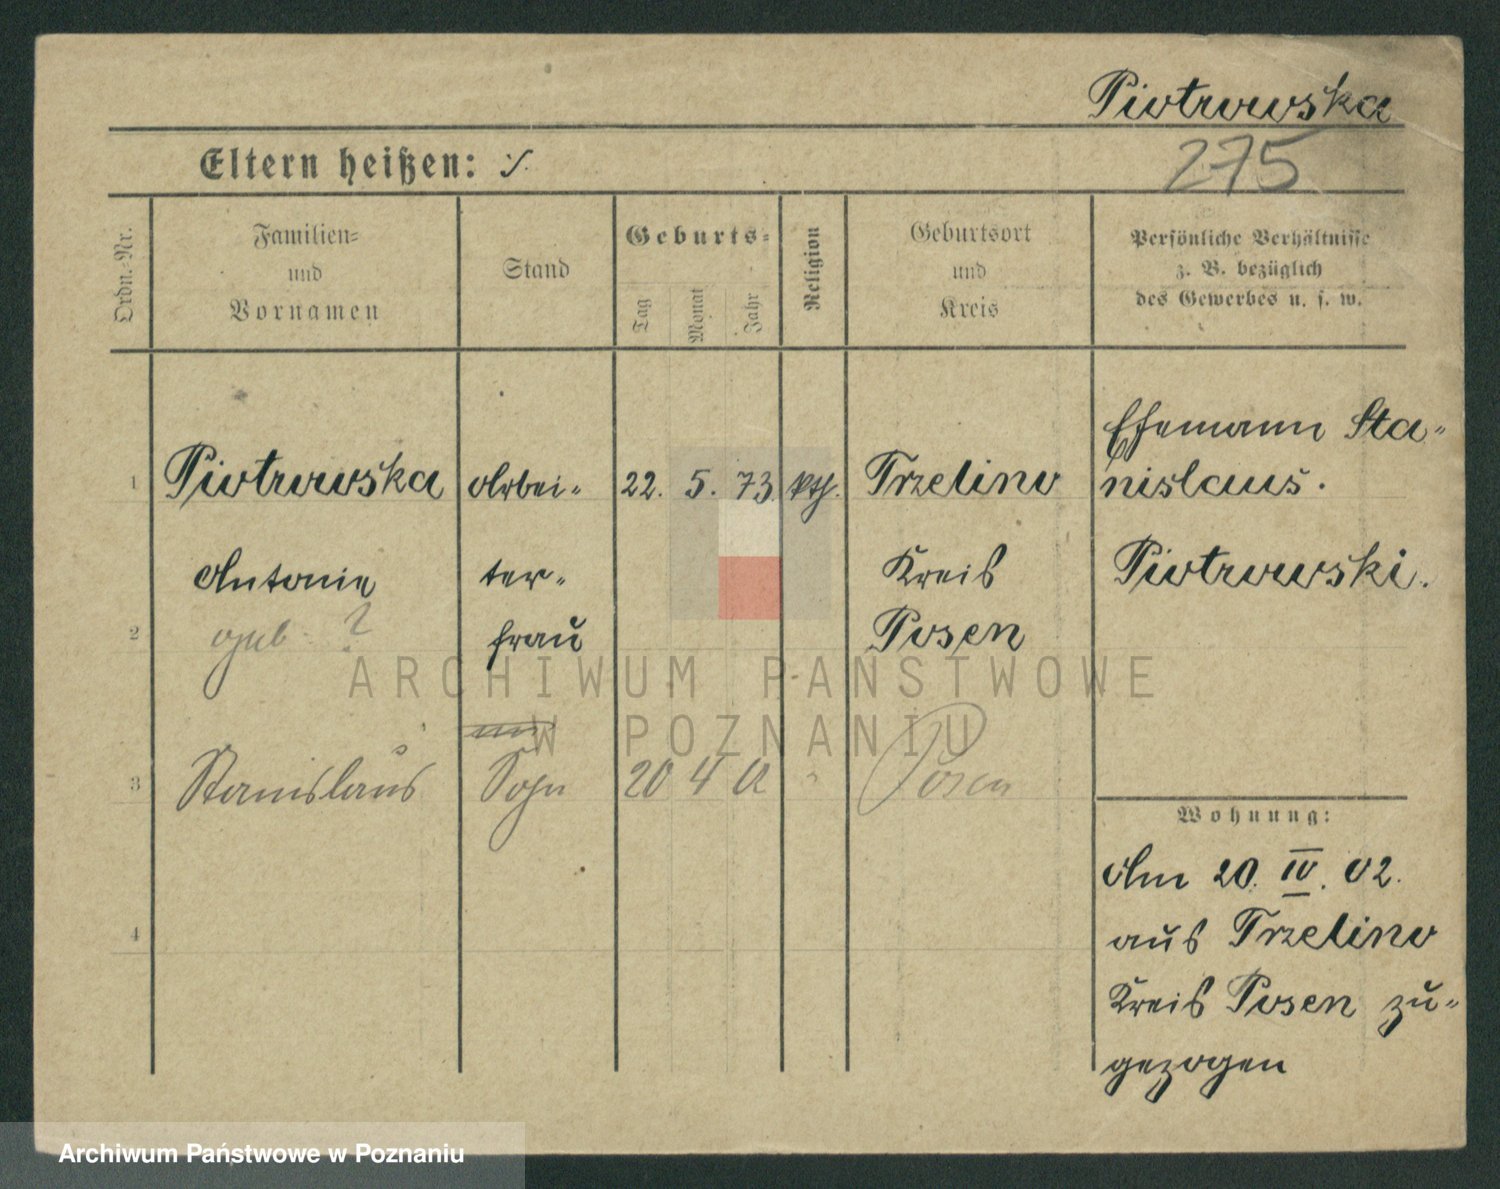 Piotrowska
275
Eltern heißen: ·/.
Ordn. Nr.
Familien-
und
Vornamen
Stand
Geburts-
Tag
Monat
Jahr
Religion
Geburtsort
und
Kreis
Persönliche Verhältnisse
z. B. bezüglich
des Gewerbes u. s. w.
Ehemann Sta-
1 Piotrowska Arbei- 22. 5. 73. kth. Trzelino nislaus.
Antonie ter- Kreis Piotrowski.
2 geb. ? frau Posen
3 Stanislaus Sohn 20 4 " Posen
Wohnung:
Am 20. IV. 02.
4 aus Trzelino
Kreis Posen zu-
gezogen
ARCHIWUM PAŃSTWOWE
W POZNANIU
Archiwum Państwowe w Poznaniu